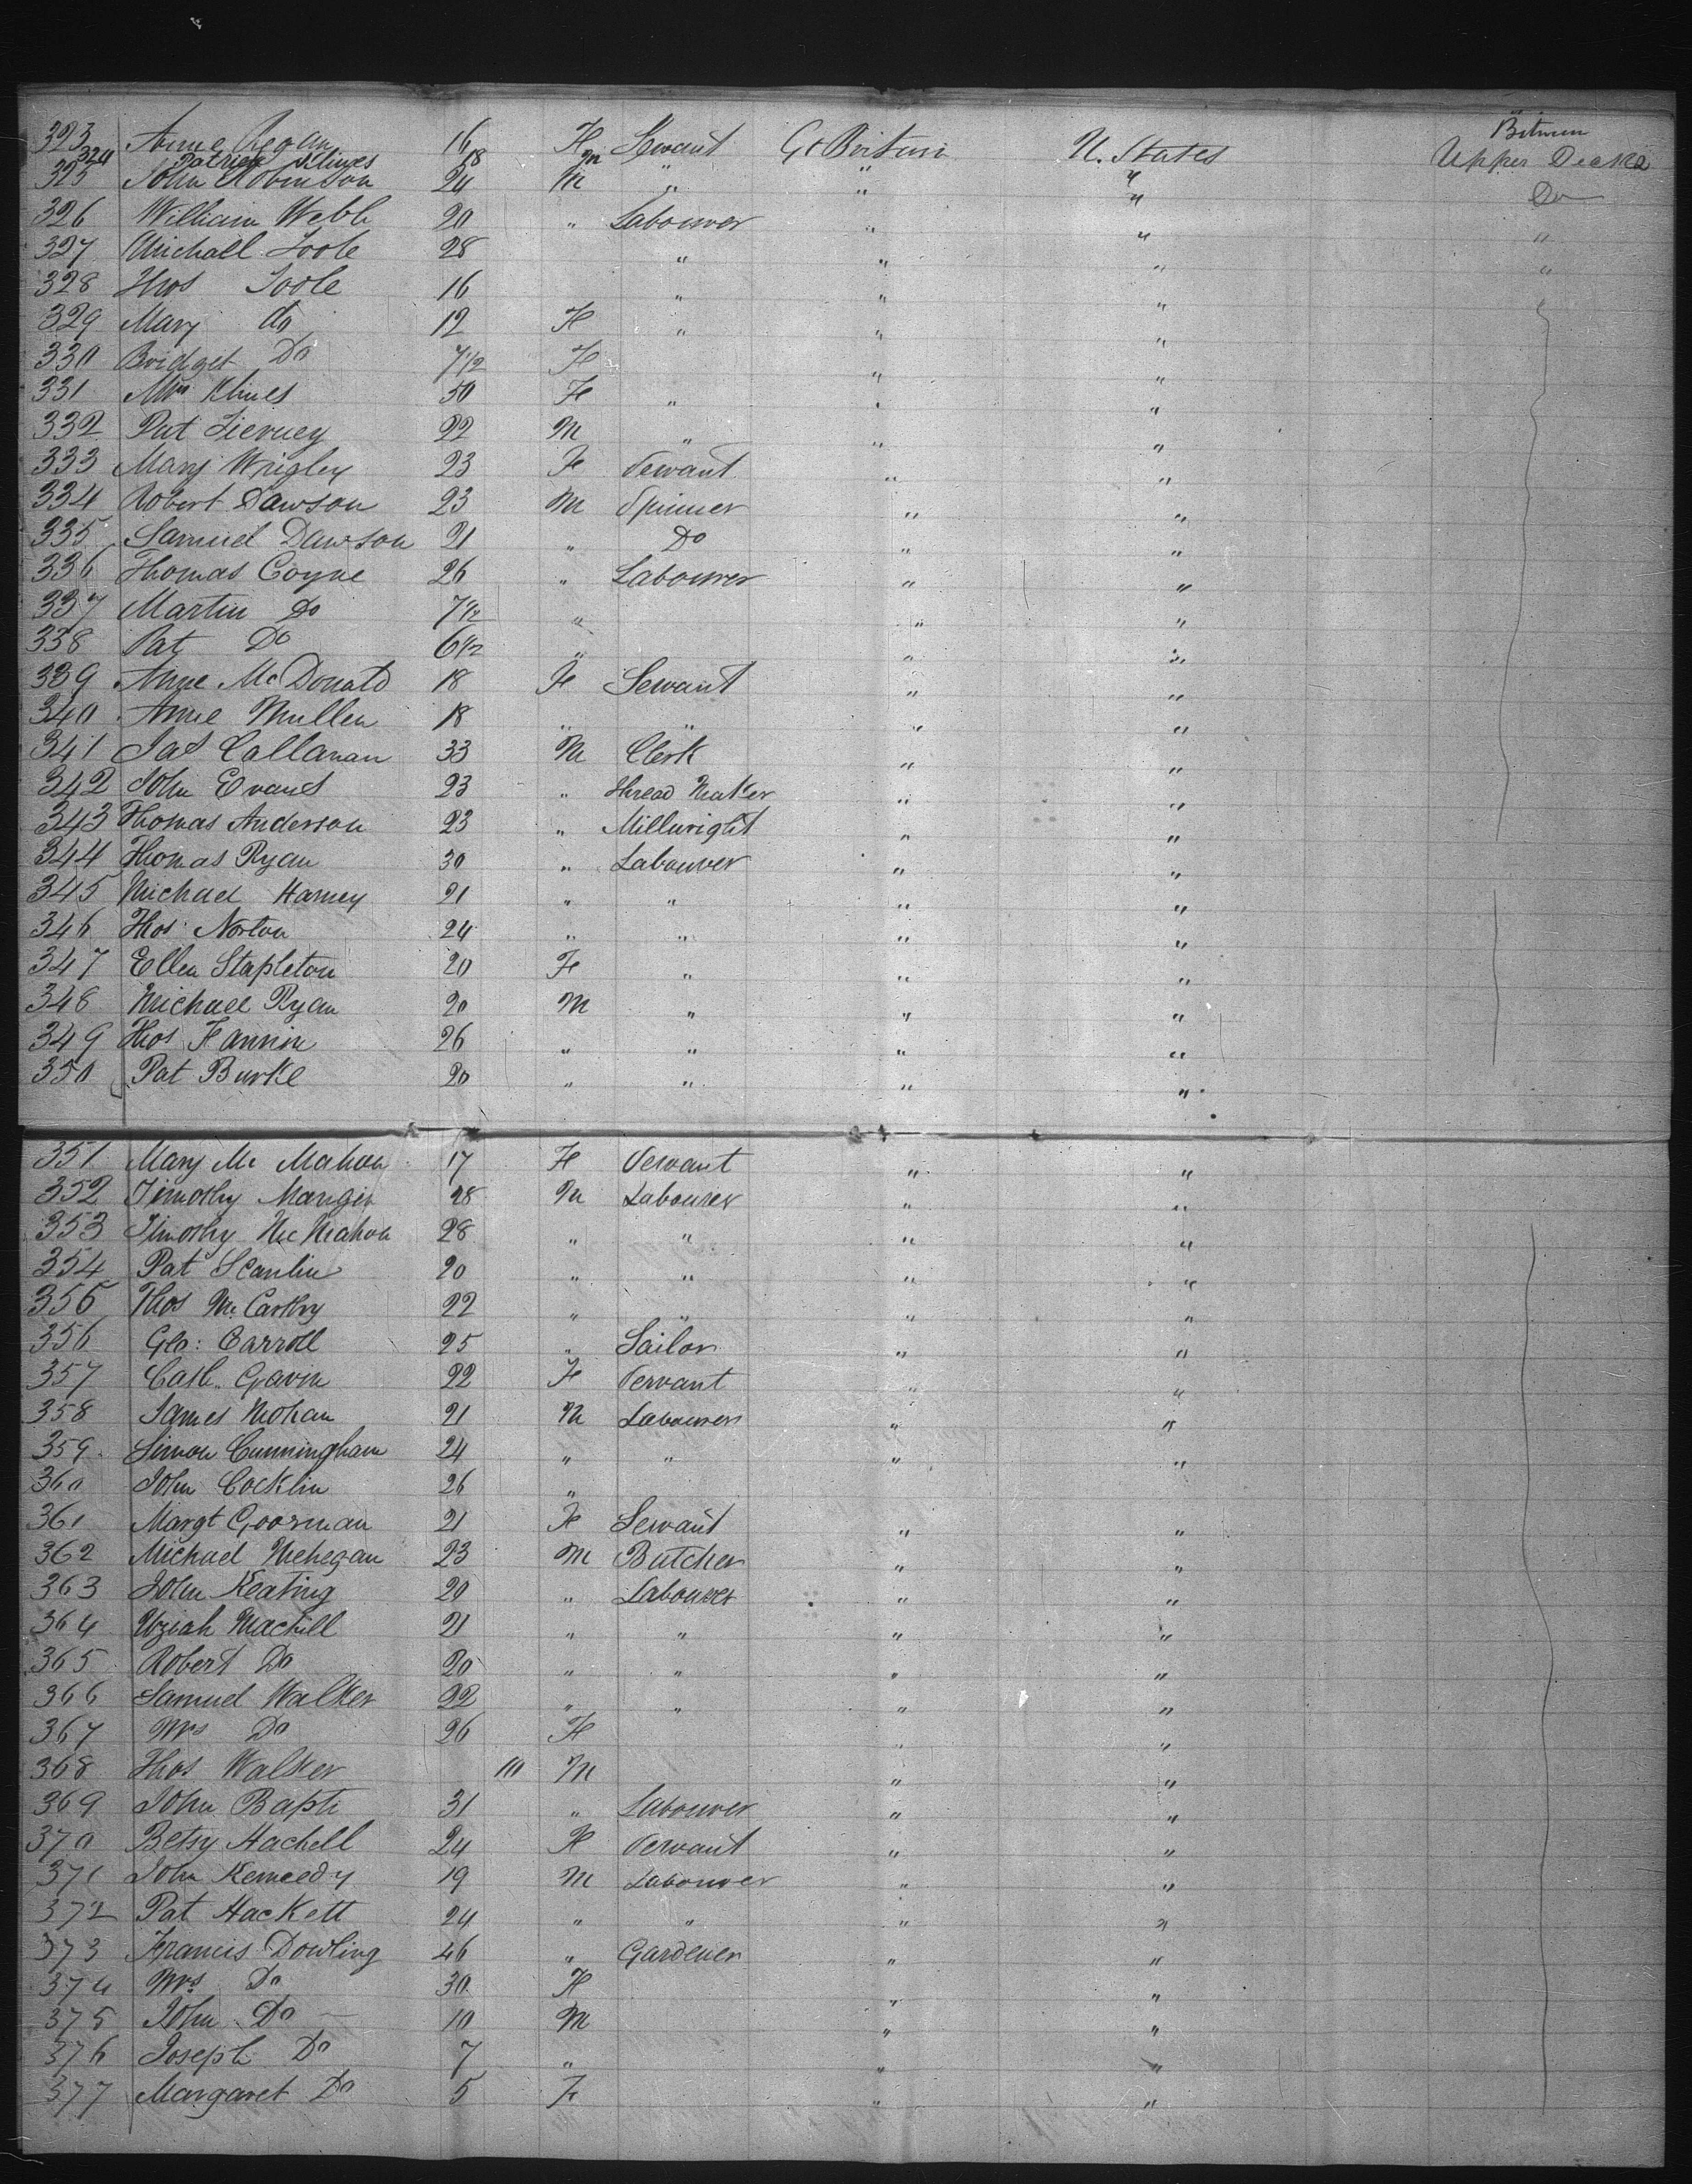 Between
323 Anne Regan 16 F Servant Gt Britain U. States Upper Decks
324 Patrick Klines 18 m " " "
325 John Robinson 24 M " " " Do
326 William Webb 20 " Labourer " " "
327 Michall Toole 28 " " " "
328 Thos Toole 16 " " "
329 Mary do 12 F " " "
330 Bridget Do 7 1/2 F " "
331 Mrs Klines 50 F " " "
332 Pat Tierney 22 M " " "
333 Mary Wrigley 23 F Servant " "
334 Robert Dawson 23 M Spinner " "
335 Samuel Dawson 21 " Do " "
336 Thomas Coyne 26 " Labourer " "
337 Martin Do 7 1/2 " " "
338 Pat Do 6 1/2 " " "
339 Anne Mc Donald 18 F Servant " "
340 Anne Mullen 18 " " " "
341 Jas Callanan 33 M Clerk " "
342 John Evans 23 " Thread Maker " "
343 Thomas Anderson 23 " Millwright " "
344 Thomas Ryan 30 " Labourer " "
345 Michael Harney 21 " " " "
346 Thos Norton 24 " " " "
347 Ellen Stapleton 20 F " " "
348 Michael Ryan 20 M " " "
349 Thos Fannin 26 " " " "
350 Pat Burke 20 " " " "
351 Mary Mc Mahon 17 F Servant " "
352 Timothy Mangin 28 M Labourer " "
353 Timothy Mc Mahon 28 " " " "
354 Pat Scanlin 20 " " " "
355 Thos McCarthy 22 " " " "
356 Geo: Carroll 25 " Sailor " "
357 Cath. Gavin 22 F Servant " "
358 James Mohan 21 M Labourer " "
359 Simon Cunningham 24 " " " "
360 John Cocklin 26 "
361 Margt Goorman 21 F Servant " "
362 Michael Mehegan 23 M Butcher " "
363 John Keating 20 " Labourer " "
364 Uziah Machill 21 " " " "
365 Robert Do 20 " " " "
366 Samuel Walker 22 " " " "
367 Mrs Do 26 F " "
368 Thos Walker 10 M " "
369 John Bapti 31 " Labourer " "
370 Betsy Hachell 24 F Servant " "
371 John Kennedy 19 M Labourer " "
372 Pat Hackett 24 " " " "
373 Francis Dowling 46 " Gardener " "
374 Mrs Do 30 F " "
375 John Do 10 M " "
376 Joseph Do 7 " " "
377 Margaret Do 5 F " "